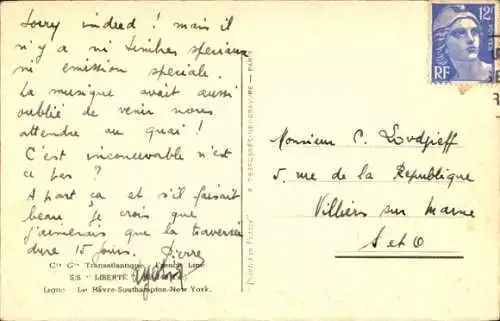 Sorry indeed ! mais il
n'y a ni timbres speciaux
ni emission speciale.
La musique avait aussi
oublié de venir nous
attendre au quai !
C'est inconcevable n'est
ce pas ?
A part ça et s'il faisait
beau, je crois que
j'aimerais que la traversée
dure 15 jours. Pierre
Cie Gle Transatlantique French Line
SS "LIBERTÉ
Ligne Le Hâvre-Southampton-New York.
PARIS
12F
RF
Monsieur C. Lovdjieff
5, rue de la République
Villiers sur Marne
S et O